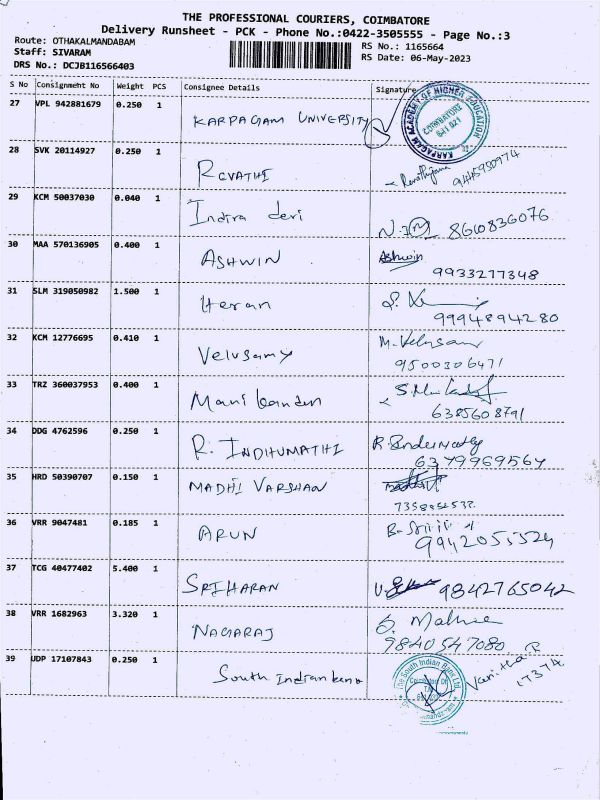 THE PROFESSIONAL COURIERS, COIMBATORE
Delivery Runsheet - PCK - Phone No.:0422-3505555 - Page No.:3
Route: OTHAKALMANDABAM
RS No.: 1165664
Staff: SIVARAM
RS Date: 06-May-2023
DRS No.: DCJB116566403
S No Consignment No Weight PCS Consignee Details Signature
27 VPL 942881679 0.250 1 KARPAGAM UNIVERSITY
KARPAGAM ACADEMY OF HIGHER EDUCATION
COIMBATORE
641 021
28 SVK 20114927 0.250 1 REVATHI
9445950974
29 KCM 50037030 0.040 1 Indira devi 8610836076
30 MAA 570136905 0.400 1 ASHWIN Ashwin
9933277348
31 SLM 319050982 1.500 1
9994894280
32 KCM 12776695 0.410 1 Velusamy M. Velusamy
9500306471
33 TRZ 360037953 0.400 1 Manikandan
6385608791
34 DDG 4762596 0.250 1 R. INDHUMATHI
6379969564
35 HRD 50390707 0.150 1 MADHI VARSHAN
36 VRR 9047481 0.185 1 ARUN
37 TCG 40477402 5.400 1 SRIHARAN 9842765042
38 VRR 1682963 3.320 1 NAGARAJ
9840547080
39 UDP 17107843 0.250 1 South Indian bank
The South Indian Bank Ltd.
Vanitha R
17374